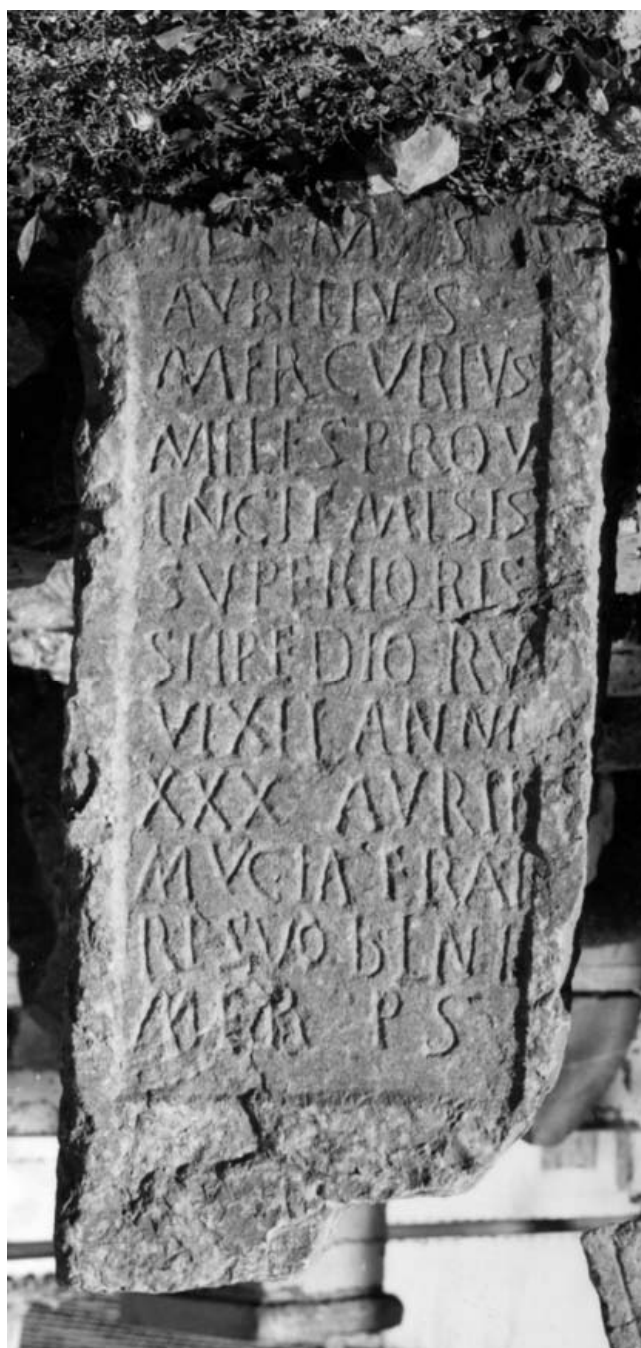 D M S
AVRELIVS
MERCVRIVS
MILES PROV
INCIE MESIE
SVPERIORIS
STIPEDIORV
VIXIT ANNI
XXX AVREL
MVCIA FRAT
RI SVO BENE
MER P S